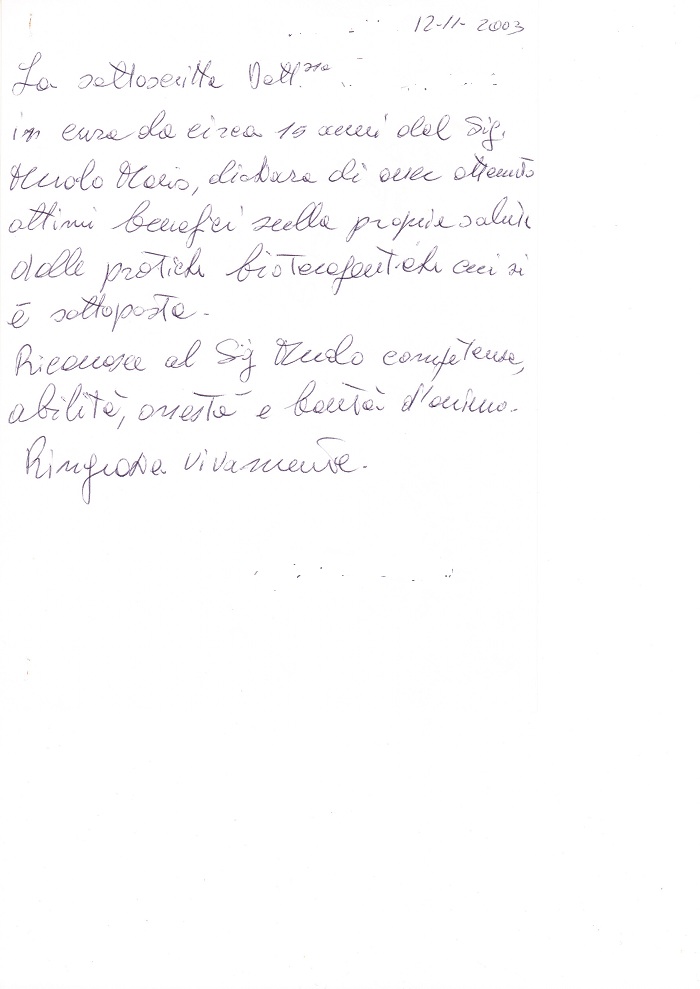 12-11-2003
La sottoscritta Dott.ssa
in cura da circa 15 anni dal Sig.
Mudo Mario, dichiara di aver ottenuto
ottimi benefici sulla propria salute
dalle pratiche bioterapeutiche cui si
è sottoposta.
Riconosce al Sig Mudo competenza,
abilità, onestà e bontà d'animo.
Ringrazia vivamente.